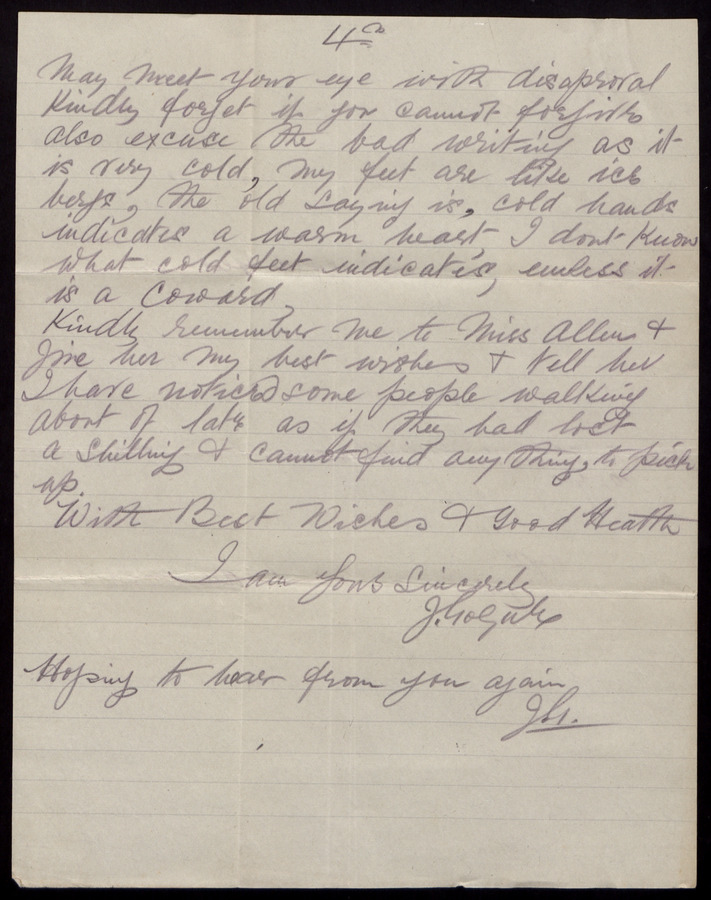 4th
may meet your eye with disaproval
Kindly forget if you cannot forgive
also excuse the bad writing as it
is very cold, my feet are like ice
bergs, the old saying is, cold hands
indicates a warm heart, I dont know
what cold feet indicates, unless it
is a Coward,
Kindly remember me to Miss Allen &
give her my best wishes & tell her
I have noticed some people walking
about of late as if they had lost
a shilling & cannot find any thing, to pick
up.
With Best Wishes & Good Health
I am yours Sincerely
J.
Hoping to hear from you again
J.G.